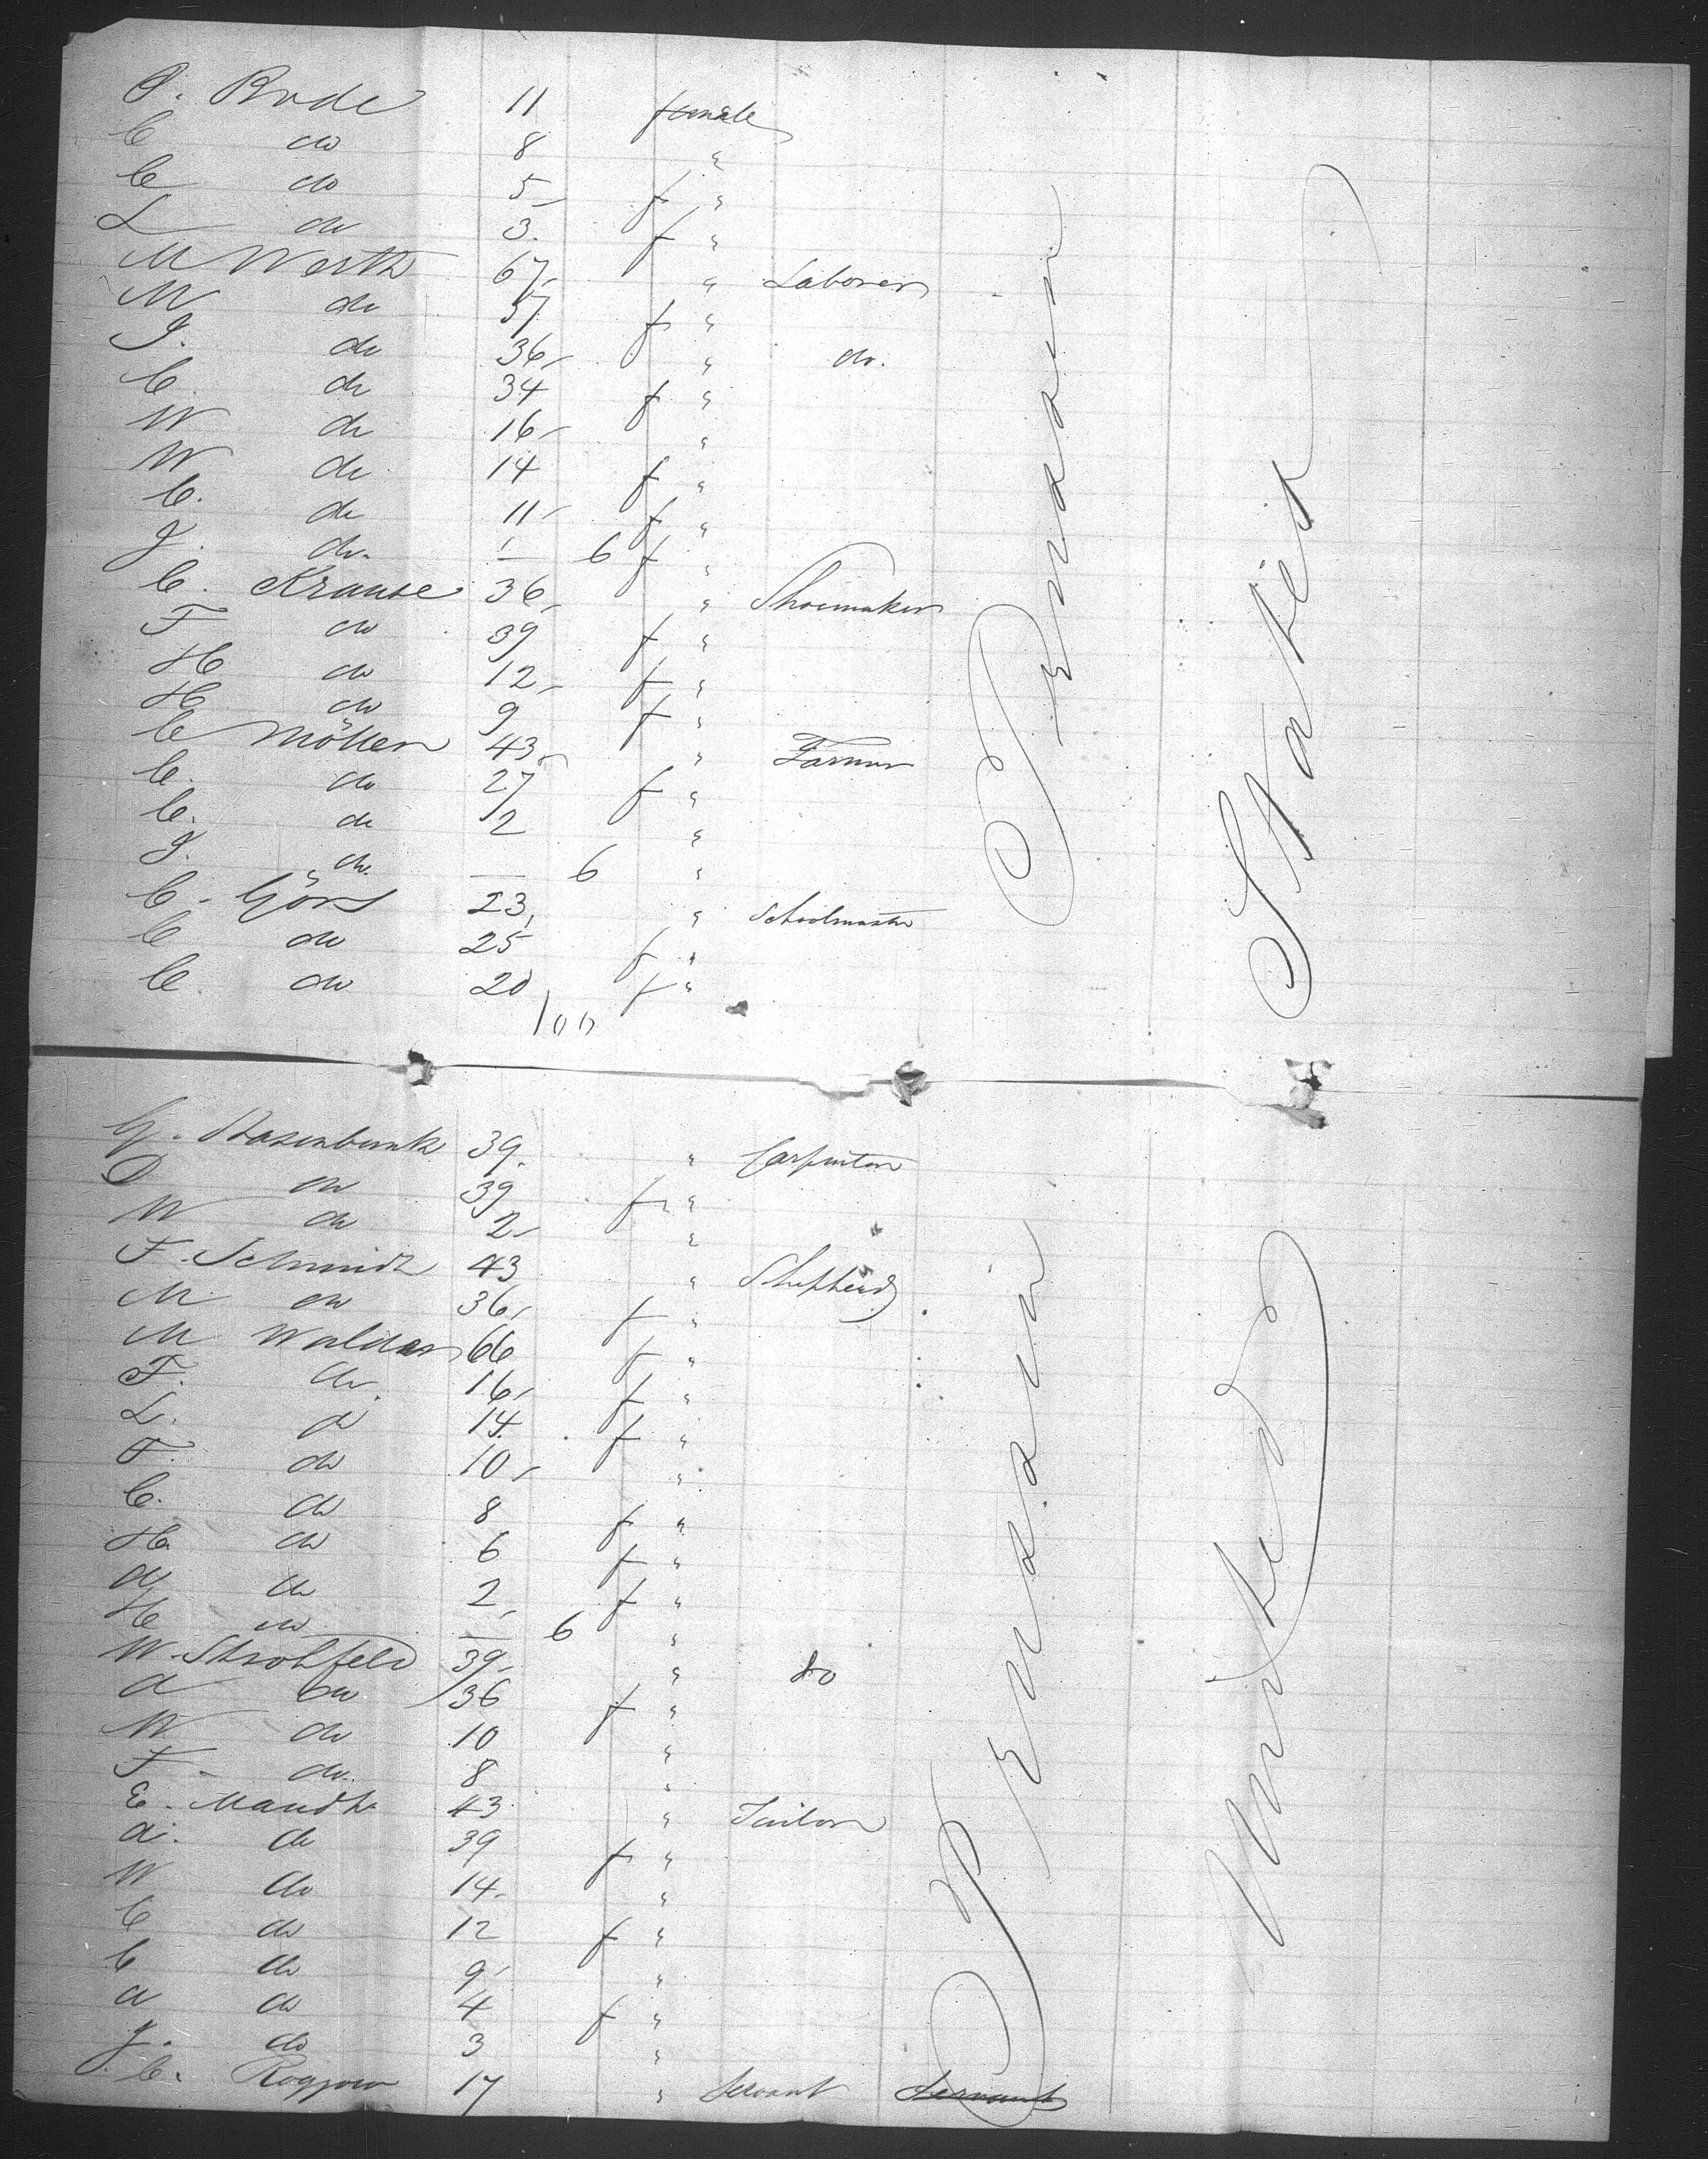 O. Bode 11 female
C do 8 "
C do 5 f "
L do 3. f "
M Werth 67 " Laborer
M do 57 f "
J. do 36 " do.
C. do 34 f "
W do 16 "
W do 14 f "
C. do 11 f "
J. do. 1 6 f "
C. Krause 36 " Shoemaker
F do 39 f "
H do 12 f "
H do 9 f "
C Möller 43 " Farmer
C. do 27 f "
C. do 2 "
J. do. — 6 "
C. Görs 23 " Schoolmaster
C do 25 f "
C. do 20 f "
100
Prussian
States
G. Hasenbank 39. " Carpenter
D do 39 f "
W do 2 "
F. Schmidt 43 " Shepherd
M do 36 f "
M 66 f "
F. do. 16 f "
L. do 14. f "
F. do 10 "
C. do 8 f "
H. do 6 f "
A do 2 f "
H do — 6 "
W. Strohfeld 39 " do
A do 36 f "
W. do 10 "
F. do. 8 "
E. Mandt 43 " Tailor
A. do 39 f "
W do 14 "
C do 12 f "
C do 9 "
A do 4 f "
J. do 3 "
C. Roggow 17 " Servant Servant
Prussian
United